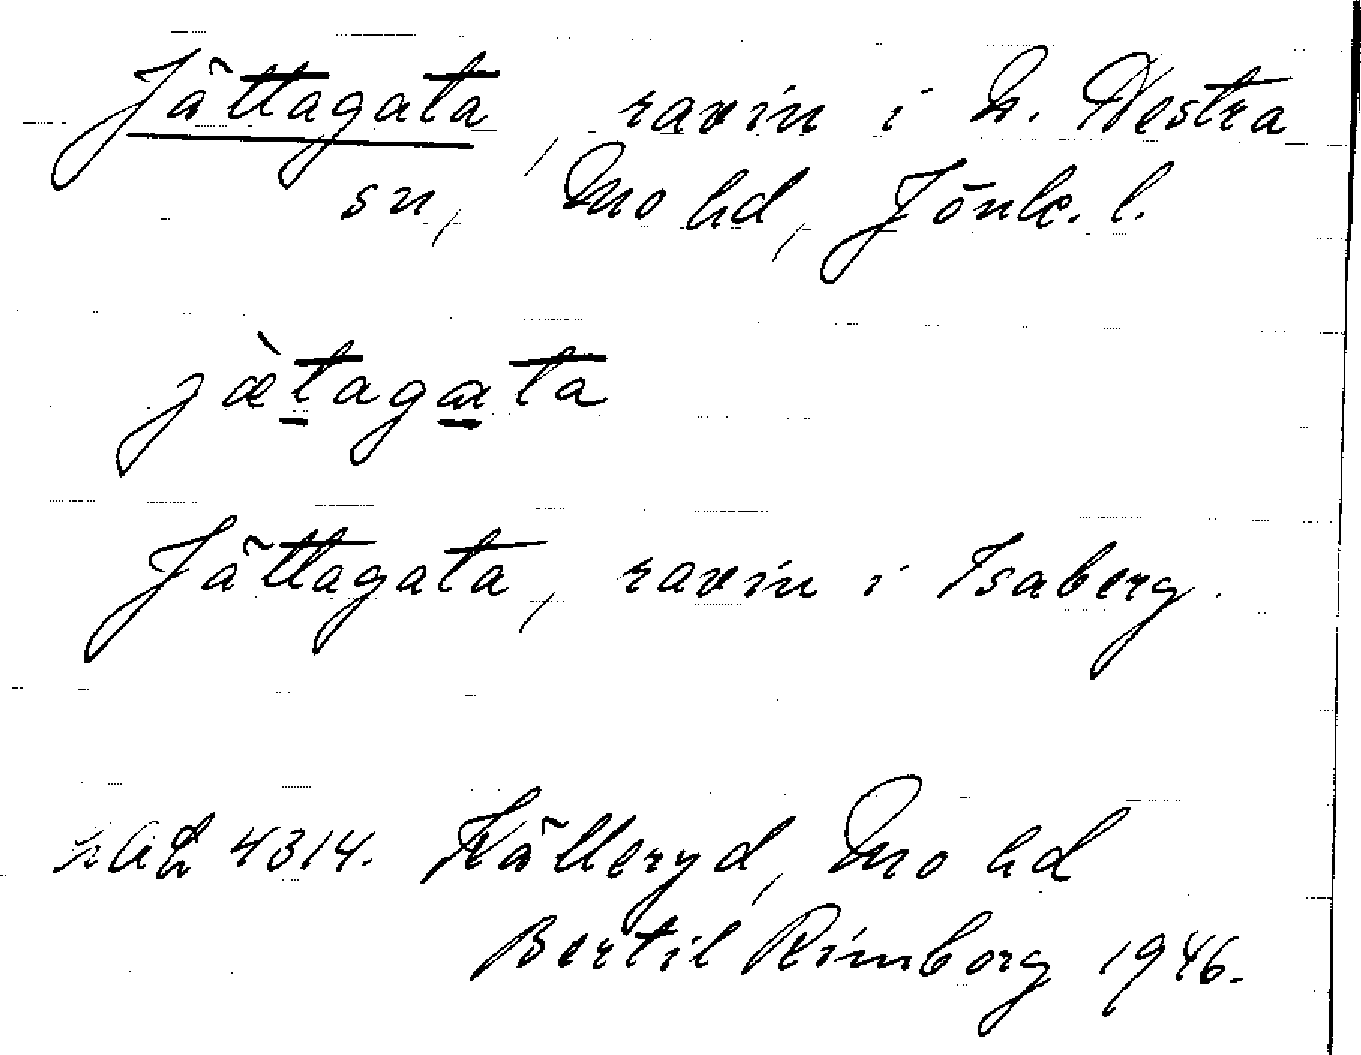 Jättagata, ravin i N. Hestra
sn, Mo hd, Jönk. l.
jæ̀tagata
Jättagata, ravin i Isaberg.
4314. Källeryd, Mo hd
Bertil Rimborg 1946.